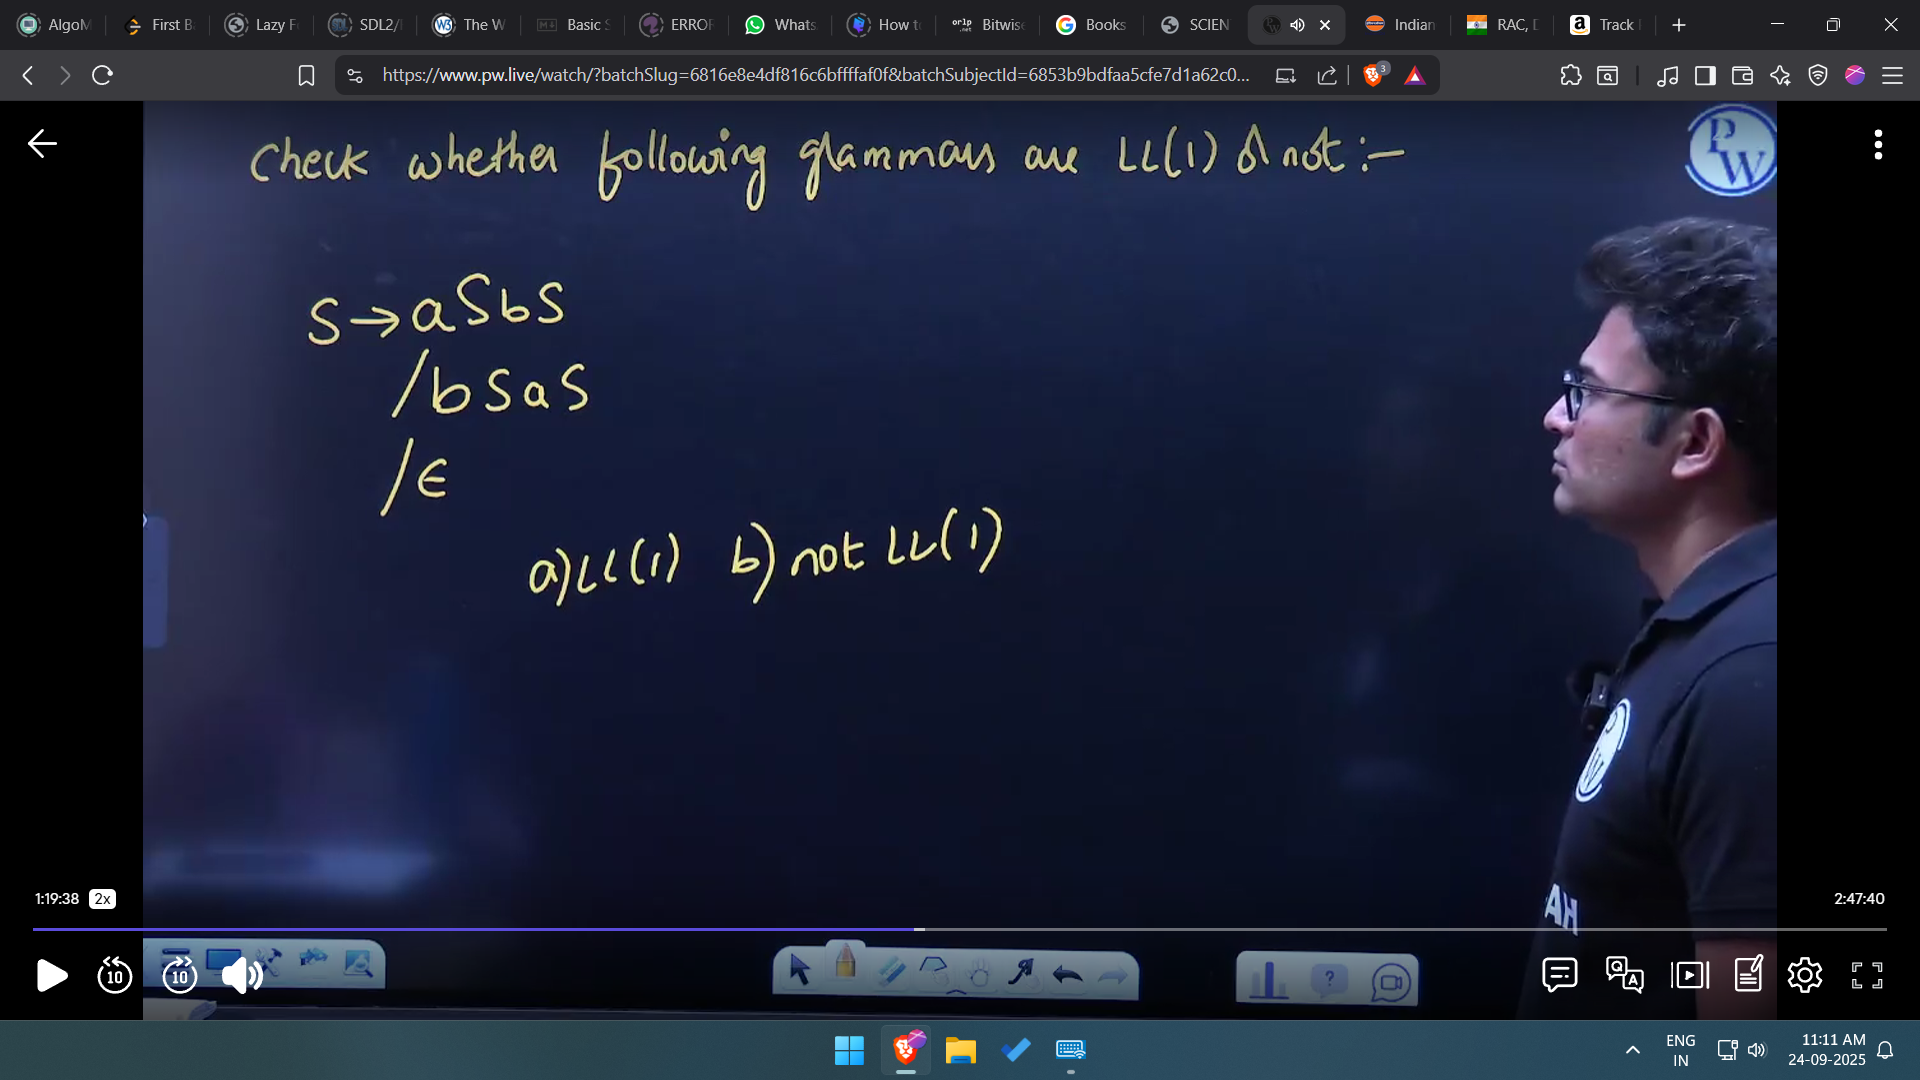 AlgoM
First B
Lazy F
SDL2/
The W
Basic S
ERROF
Whats
How t
orlp .net Bitwis
Books
SCIEN
Indian
RAC, D
Track
https://www.pw.live/watch/?batchSlug=6816e8e4df816c6bffffaf0f&batchSubjectId=6853b9bdfaa5cfe7d1a62c0...
3
Check whether following grammars are LL(1) or not :-
PW
S → aSbS
/ bSaS
/ ϵ
a) LL(1) b) not LL(1)
PW
AH
1:19:38 2x
2:47:40
10
10
ENG
IN
11:11 AM
24-09-2025